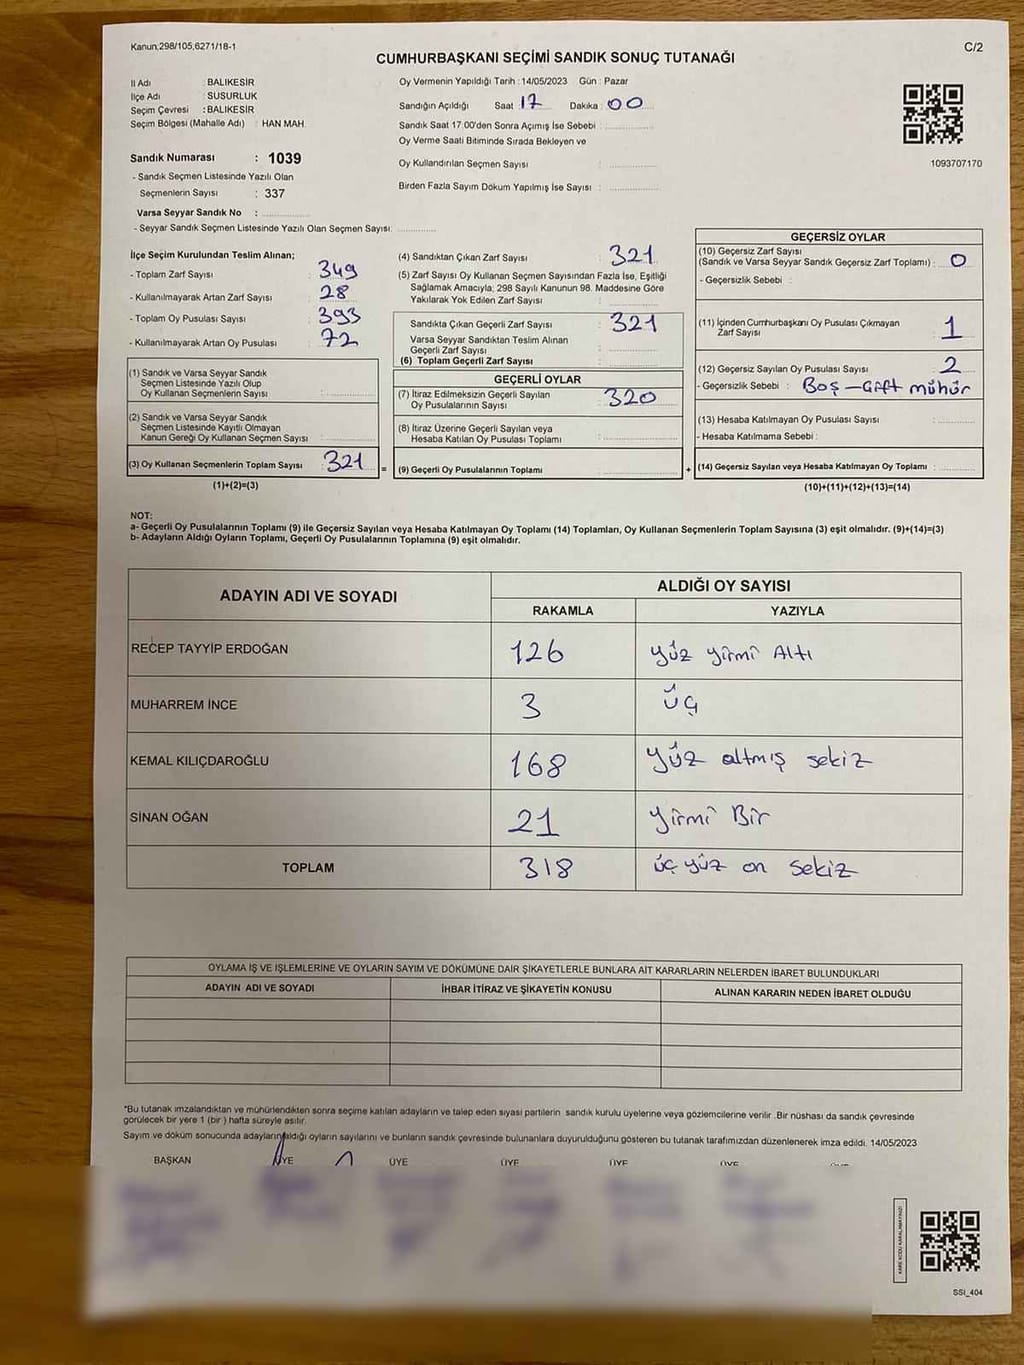 Kanun,298/105,6271/18-1
C/2
CUMHURBAŞKANI SEÇİMİ SANDIK SONUÇ TUTANAĞI
İl Adı : BALIKESİR
İlçe Adı : SUSURLUK
Seçim Çevresi : BALIKESİR
Seçim Bölgesi (Mahalle Adı) : HAN MAH.
Sandık Numarası : 1039
- Sandık Seçmen Listesinde Yazılı Olan
Seçmenlerin Sayısı : 337
Varsa Seyyar Sandık No :
- Seyyar Sandık Seçmen Listesinde Yazılı Olan Seçmen Sayısı:
Oy Vermenin Yapıldığı Tarih : 14/05/2023 Gün : Pazar
Sandığın Açıldığı Saat 17 Dakika 00
Sandık Saat 17:00'den Sonra Açımış İse Sebebi :
Oy Verme Saati Bitiminde Sırada Bekleyen ve
Oy Kullandırılan Seçmen Sayısı :
Birden Fazla Sayım Döküm Yapılmış İse Sayısı :
1093707170
İlçe Seçim Kurulundan Teslim Alınan;
- Toplam Zarf Sayısı : 349
- Kullanılmayarak Artan Zarf Sayısı : 28
- Toplam Oy Pusulası Sayısı : 393
- Kullanılmayarak Artan Oy Pusulası : 72
(1) Sandık ve Varsa Seyyar Sandık
Seçmen Listesinde Yazılı Olup
Oy Kullanan Seçmenlerin Sayısı :
(2) Sandık ve Varsa Seyyar Sandık
Seçmen Listesinde Kayıtlı Olmayan
Kanun Gereği Oy Kullanan Seçmen Sayısı :
(3) Oy Kullanan Seçmenlerin Toplam Sayısı : 321
(1)+(2)=(3)
=
(4) Sandıktan Çıkan Zarf Sayısı : 321
(5) Zarf Sayısı Oy Kullanan Seçmen Sayısından Fazla İse, Eşitliği
Sağlamak Amacıyla; 298 Sayılı Kanunun 98. Maddesine Göre
Yakılarak Yok Edilen Zarf Sayısı :
Sandıkta Çıkan Geçerli Zarf Sayısı : 321
Varsa Seyyar Sandıktan Teslim Alınan
Geçerli Zarf Sayısı :
(6) Toplam Geçerli Zarf Sayısı :
GEÇERLİ OYLAR
(7) İtiraz Edilmeksizin Geçerli Sayılan
Oy Pusulalarının Sayısı : 320
(8) İtiraz Üzerine Geçerli Sayılan veya
Hesaba Katılan Oy Pusulası Toplamı :
(9) Geçerli Oy Pusulalarının Toplamı :
+
GEÇERSİZ OYLAR
(10) Geçersiz Zarf Sayısı
(Sandık ve Varsa Seyyar Sandık Geçersiz Zarf Toplamı) : 0
- Geçersizlik Sebebi :
(11) İçinden Cumhurbaşkanı Oy Pusulası Çıkmayan
Zarf Sayısı : 1
(12) Geçersiz Sayılan Oy Pusulası Sayısı : 2
- Geçersizlik Sebebi : Boş – Çift mühür
(13) Hesaba Katılmayan Oy Pusulası Sayısı :
- Hesaba Katılmama Sebebi :
(14) Geçersiz Sayılan veya Hesaba Katılmayan Oy Toplamı :
(10)+(11)+(12)+(13)=(14)
NOT:
a- Geçerli Oy Pusulalarının Toplamı (9) ile Geçersiz Sayılan veya Hesaba Katılmayan Oy Toplamı (14) Toplamları, Oy Kullanan Seçmenlerin Toplam Sayısına (3) eşit olmalıdır. (9)+(14)=(3)
b- Adayların Aldığı Oyların Toplamı, Geçerli Oy Pusulalarının Toplamına (9) eşit olmalıdır.
ADAYIN ADI VE SOYADI
ALDIĞI OY SAYISI
RAKAMLA YAZIYLA
RECEP TAYYİP ERDOĞAN 126 yüz yirmi Altı
MUHARREM İNCE 3 üç
KEMAL KILIÇDAROĞLU 168 yüz altmış sekiz
SİNAN OĞAN 21 yirmi Bir
TOPLAM 318 üç yüz on sekiz
OYLAMA İŞ VE İŞLEMLERİNE VE OYLARIN SAYIM VE DÖKÜMÜNE DAİR ŞİKAYETLERLE BUNLARA AİT KARARLARIN NELERDEN İBARET BULUNDUKLARI
ADAYIN ADI VE SOYADI İHBAR İTİRAZ VE ŞİKAYETİN KONUSU ALINAN KARARIN NEDEN İBARET OLDUĞU
*Bu tutanak imzalandıktan ve mühürlendikten sonra seçime katılan adayların ve talep eden siyasi partilerin sandık kurulu üyelerine veya gözlemcilerine verilir .Bir nüshası da sandık çevresinde
görülecek bir yere 1 (bir ) hafta süreyle asılır.
Sayım ve döküm sonucunda adayların aldığı oyların sayılarını ve bunların sandık çevresinde bulunanlara duyurulduğunu gösteren bu tutanak tarafımızdan düzenlenerek imza edildi. 14/05/2023
BAŞKAN ÜYE ÜYE ÜYE ÜYE ÜYE
KARE KODU KARALAMAYINIZ!
SSİ_404